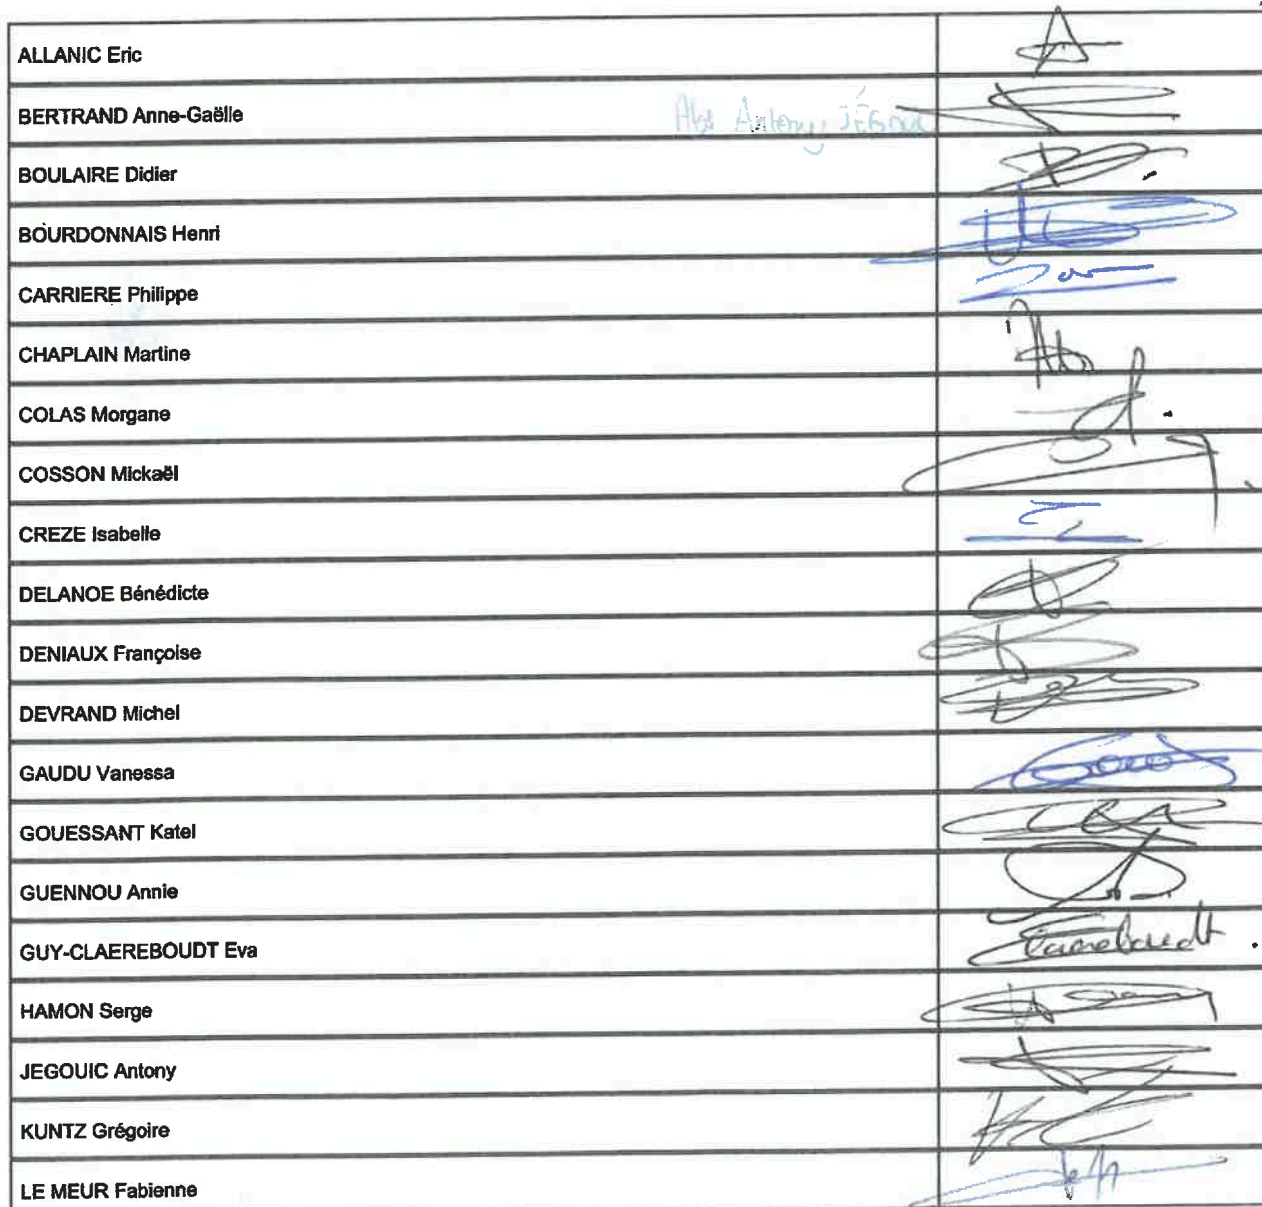 ALLANIC Eric
BERTRAND Anne-Gaëlle
Antony
BOULAIRE Didier
BOURDONNAIS Henri
CARRIERE Philippe
CHAPLAIN Martine
COLAS Morgane
COSSON Mickaël
CREZE Isabelle
DELANOE Bénédicte
DENIAUX Françoise
DEVRAND Michel
GAUDU Vanessa
GOUESSANT Katel
GUENNOU Annie
GUY-CLAEREBOUDT Eva
HAMON Serge
JEGOUIC Antony
KUNTZ Grégoire
LE MEUR Fabienne